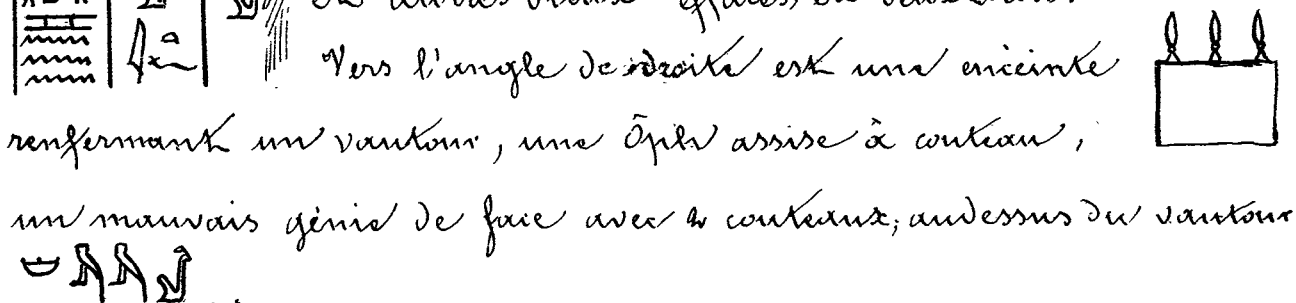 Vers l'angle de droite est une enceinte
renfermant un vautour, une Ôph assise à couteau,
un mauvais génie de face avec 2 couteaux; audessus du vautour